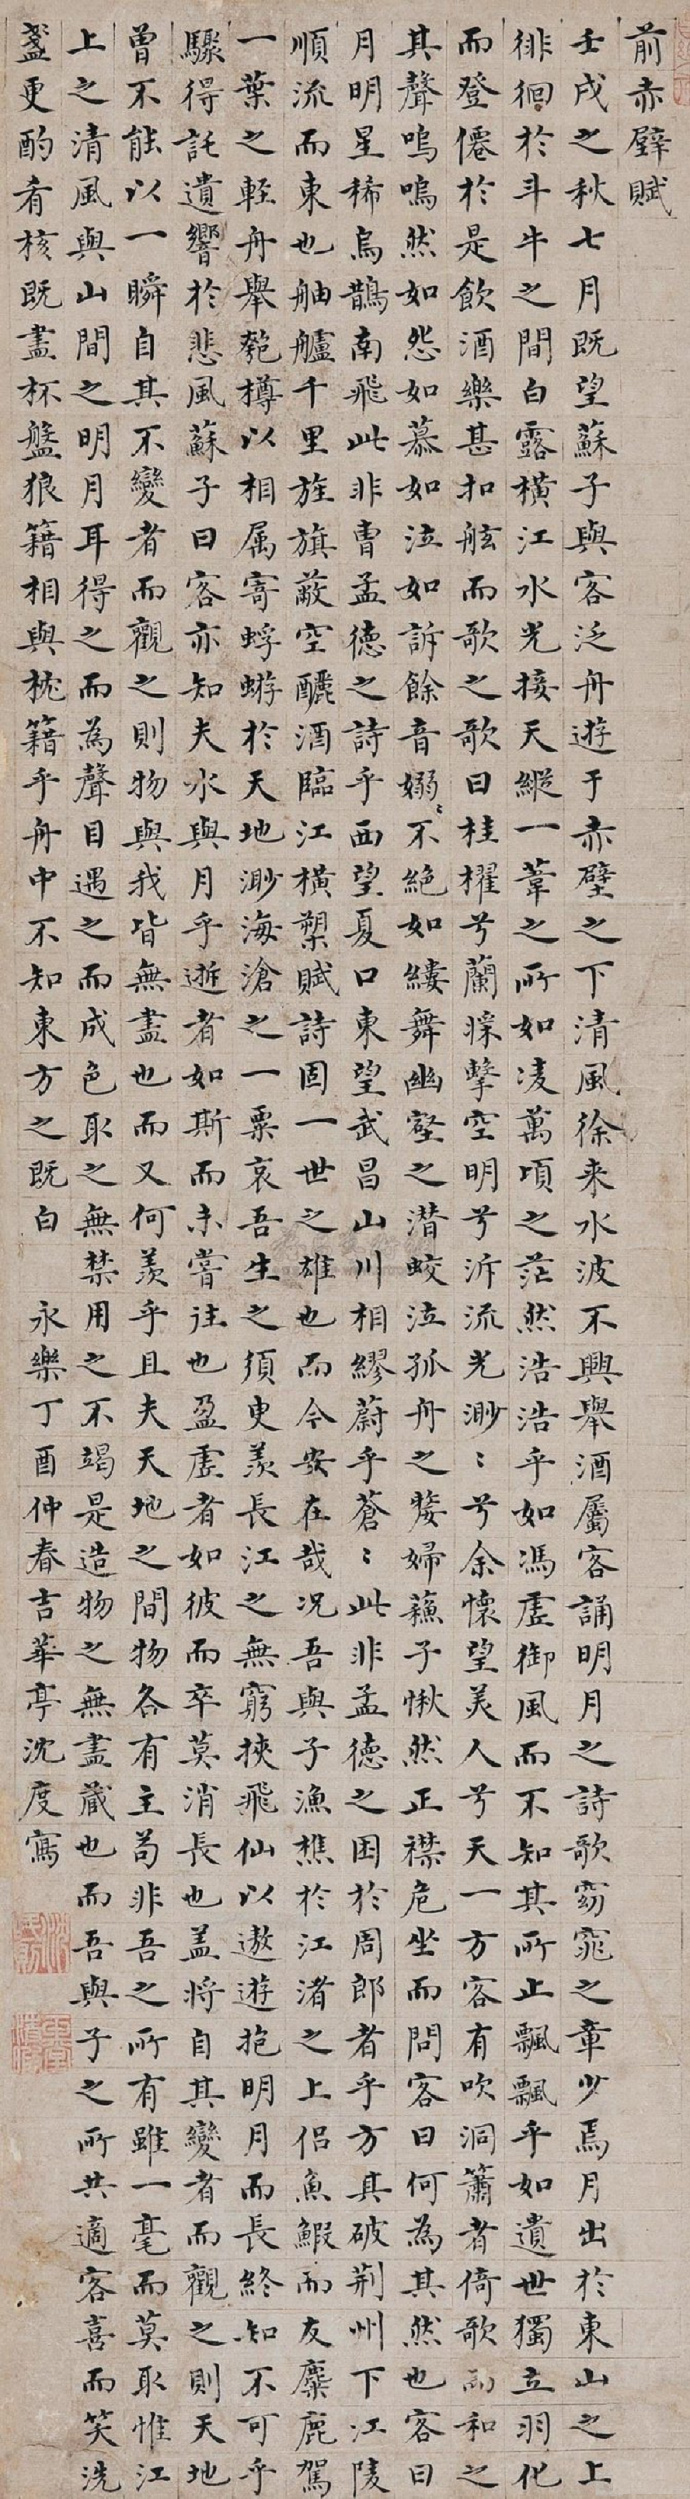 前赤壁賦
壬戌之秋七月既望蘇子與客泛舟遊于赤壁之下清風徐来水波不興舉酒屬客誦明月之詩歌窈窕之章少焉月出於東山之上
徘徊於斗牛之間白露橫江水光接天縱一葦之所如凌萬頃之茫然浩浩乎如馮虛御風而不知其所止飄飄乎如遺世獨立羽化
而登僊於是飲酒樂甚扣舷而歌之歌曰桂櫂兮蘭槳擊空明兮泝流光渺〻兮余懷望美人兮天一方客有吹洞簫者倚歌而和之
其聲嗚嗚然如怨如慕如泣如訴餘音嫋〻不絕如縷舞幽壑之潜蛟泣孤舟之嫠婦蘓子愀然正襟危坐而問客曰何為其然也客曰
月明星稀烏鵲南飛此非曹孟德之詩乎西望夏口東望武昌山川相繆蔚乎蒼〻此非孟德之困於周郎者乎方其破荆州下江陵
順流而東也舳艫千里旌旗蔽空釃酒臨江橫槊賦詩固一世之雄也而今安在哉况吾與子漁樵於江渚之上侣魚鰕而友麋鹿駕
一葉之輕舟舉匏樽以相属寄蜉蝣於天地渺海滄之一粟哀吾生之須臾羨長江之無窮挾飛仙以遨遊抱明月而長終知不可乎
驟得託遺響於悲風蘇子曰客亦知夫水與月乎逝者如斯而未嘗往也盈虛者如彼而卒莫消長也盖將自其變者而觀之則天地
曾不能以一瞬自其不變者而觀之則物與我皆無盡也而又何羨乎且夫天地之間物各有主苟非吾之所有雖一毫而莫取惟江
上之清風與山間之明月耳得之而為聲目遇之而成色取之無禁用之不竭是造物之無盡蔵也而吾與子之所共適客喜而笑洗
盞更酌肴核既盡杯盤狼籍相與枕籍乎舟中不知東方之既白 永樂丁酉仲春吉華亭沈度寫